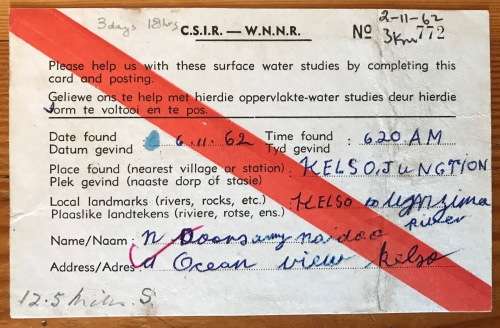 3 days 18 hrs
C.S.I.R. — W.N.N.R.
2-11-62
3 Km
No 772
Please help us with these surface water studies by completing this
card and posting.
Geliewe ons te help met hierdie oppervlakte-water studies deur hierdie
vorm te voltooi en te pos.
Date found 6.11.62 Time found : 6 20 AM
Datum gevind Tyd gevind
Place found (nearest village or station) : KELSO, JUNGTION
Plek gevind (naaste dorp of stasie)
Local landmarks (rivers, rocks, etc.) KELSO
Plaaslike landtekens (riviere, rotse, ens.) River
Name/Naam : N Doorsamy naidoo
Address/Adres Ocean view kelso
12.5 miles S.